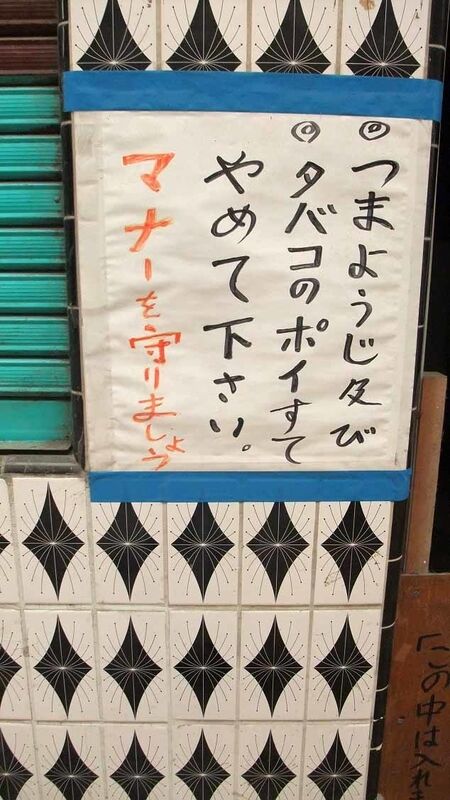 ◎つまようじ及び
◎タバコのポイすて
やめて下さい。
マナーを守りましょう
「この中は入れ